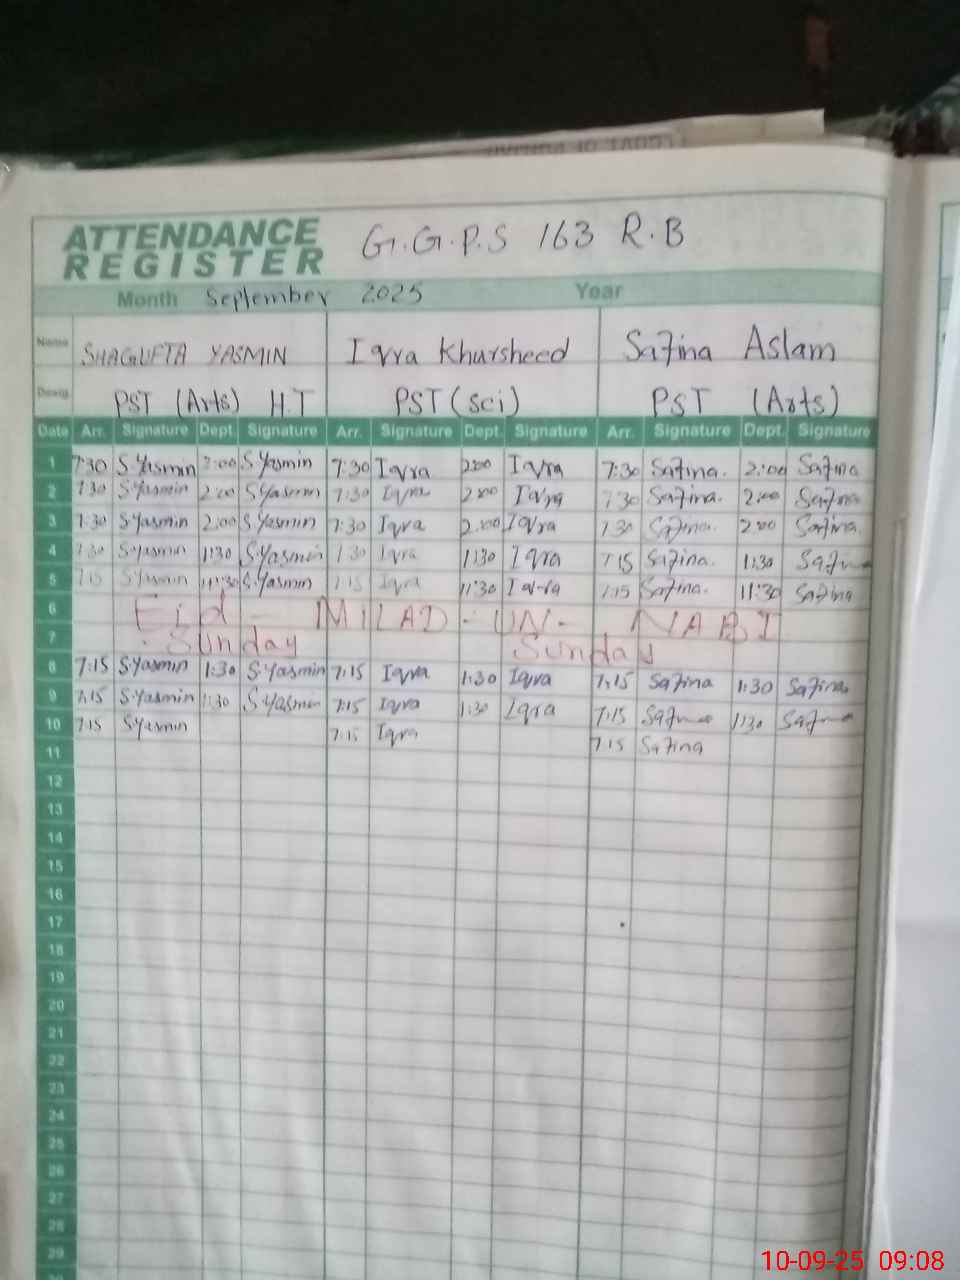 ATTENDANCE REGISTER G.G.P.S 163 R.B
Month September 2025 Year
Name SHAGUFTA YASMIN Iqra Khursheed Safina Aslam
Desig. PST (Arts) H.T PST (sci) PST (Arts)
Date Arr. Signature Dept. Signature Arr. Signature Dept. Signature Arr. Signature Dept. Signature
1 7:30 S.Yasmin 2:00 S.Yasmin 7:30 Iqra 2:00 Iqra 7:30 Safina. 2:00 Safina
2 7:30 S.Yasmin 2:00 S.Yasmin 7:30 Iqra 2:00 Iqra 7:30 Safina. 2:00 Safina
3 7:30 S.Yasmin 2:00 S.Yasmin 7:30 Iqra 2:00 Iqra 7:30 Safina. 2:00 Safina.
4 7:30 S.Yasmin 11:30 S.Yasmin 7:30 Iqra 11:30 Iqra 7:15 Safina. 11:30 Safina
5 7:15 S.Yasmin 11:30 S.Yasmin 7:15 Iqra 11:30 Iqra 7:15 Safina. 11:30 Safina
6 Eid - MILAD - UN - NABI
7 Sunday Sunday
8 7:15 S.Yasmin 1:30 S.Yasmin 7:15 Iqra 1:30 Iqra 7:15 Safina 1:30 Safina
9 7:15 S.Yasmin 1:30 S.Yasmin 7:15 Iqra 1:30 Iqra 7:15 Safina 1:30 Safina
10 7:15 S.Yasmin 7:15 Iqra 7:15 Safina
11
12
13
14
15
16
17
18
19
20
21
22
23
24
25
26
27
28
29
10-09-25 09:08